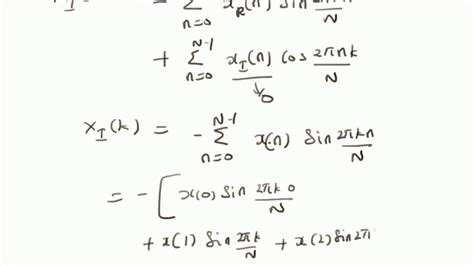 X_I = Σ_{n=0} x_R(n) sin 2πnk/N
+ Σ_{n=0}^{N-1} x_I(n) cos 2πnk/N
↓0
X_I(k) = - Σ_{n=0}^{N-1} x(n) sin 2πkn/N
= - [ x(0) sin 2πk0/N
+ x(1) sin 2πk/N + x(2) sin 2π